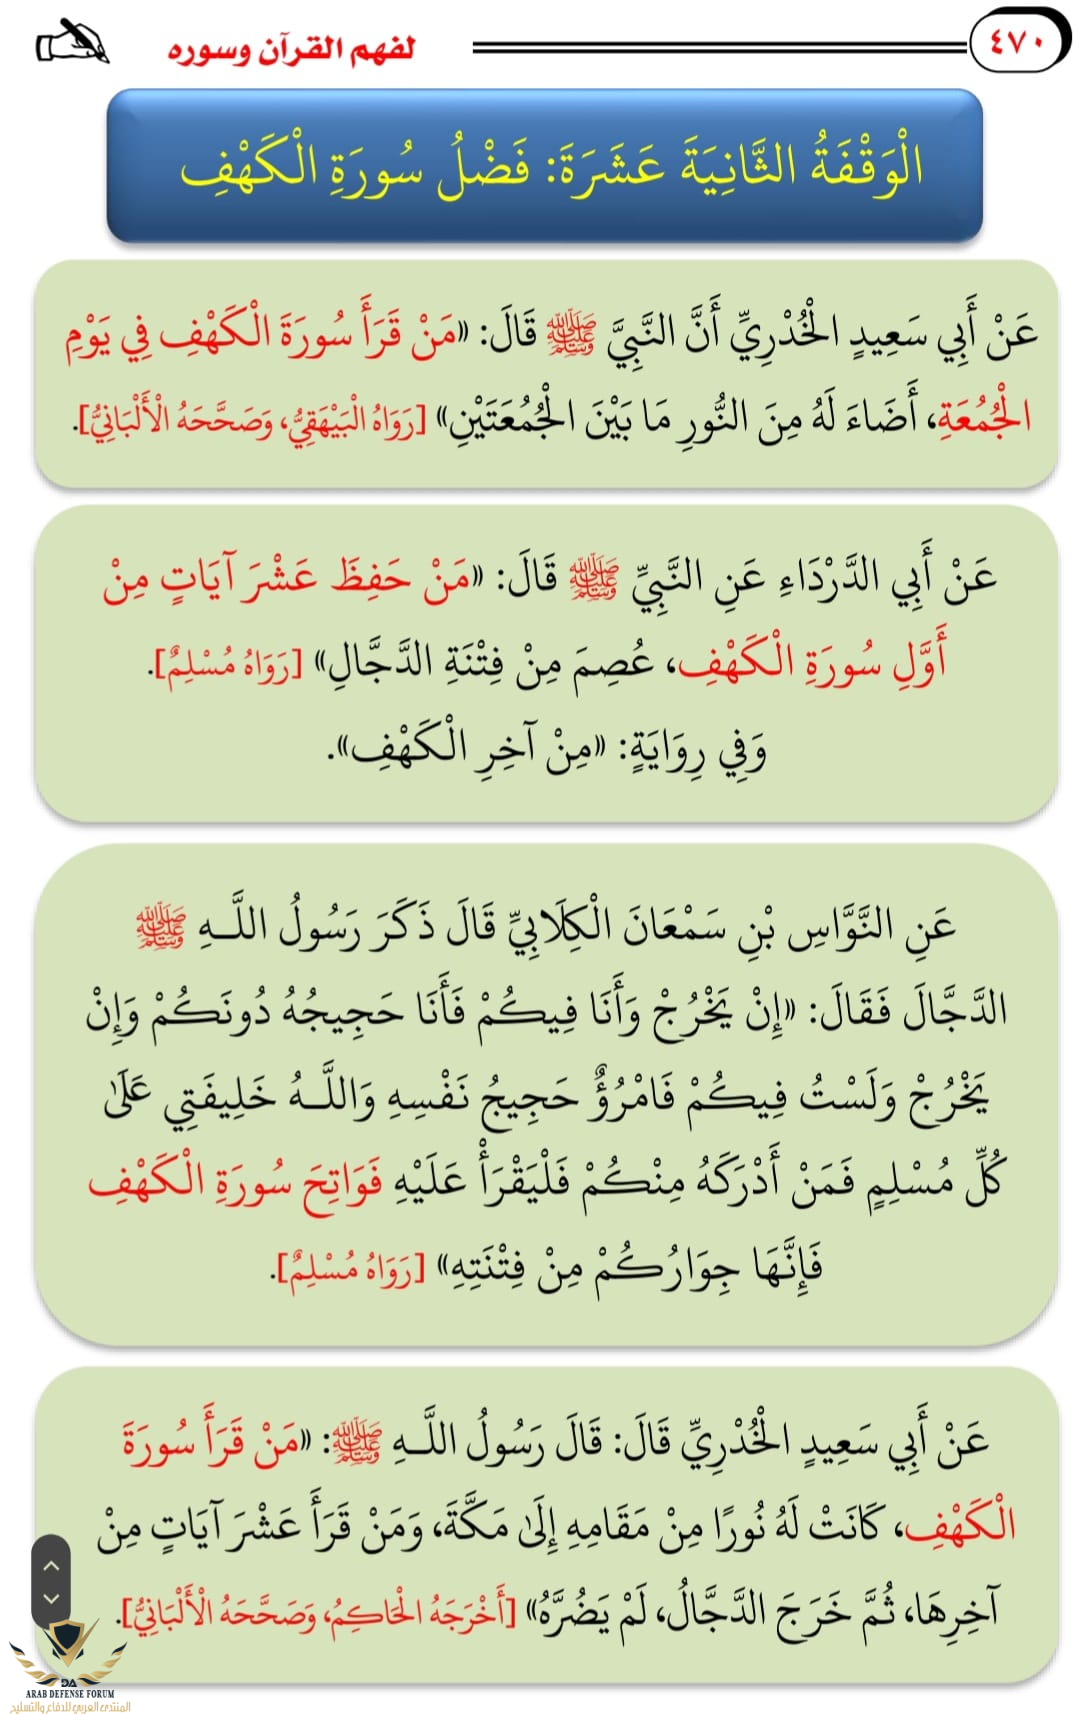 ٤٧٠
لفهم القرآن وسوره
الْوَقْفَةُ الثَّانِيَةَ عَشَرَةَ: فَضْلُ سُورَةِ الْكَهْفِ
عَنْ أَبِي سَعِيدٍ الْخُدْرِيِّ أَنَّ النَّبِيَّ ﷺ قَالَ: «مَنْ قَرَأَ سُورَةَ الْكَهْفِ فِي يَوْمِ
الْجُمُعَةِ، أَضَاءَ لَهُ مِنَ النُّورِ مَا بَيْنَ الْجُمُعَتَيْنِ» [رَوَاهُ الْبَيْهَقِيُّ، وَصَحَّحَهُ الْأَلْبَانِيُّ].
عَنْ أَبِي الدَّرْدَاءِ عَنِ النَّبِيِّ ﷺ قَالَ: «مَنْ حَفِظَ عَشْرَ آيَاتٍ مِنْ
أَوَّلِ سُورَةِ الْكَهْفِ، عُصِمَ مِنْ فِتْنَةِ الدَّجَّالِ» [رَوَاهُ مُسْلِمٌ].
وَفِي رِوَايَةٍ: «مِنْ آخِرِ الْكَهْفِ».
عَنِ النَّوَّاسِ بْنِ سَمْعَانَ الْكِلَابِيِّ قَالَ ذَكَرَ رَسُولُ اللَّـهِ ﷺ
الدَّجَّالَ فَقَالَ: «إِنْ يَخْرُجْ وَأَنَا فِيكُمْ فَأَنَا حَجِيجُهُ دُونَكُمْ وَإِنْ
يَخْرُجْ وَلَسْتُ فِيكُمْ فَامْرُؤٌ حَجِيجُ نَفْسِهِ وَاللَّـهُ خَلِيفَتِي عَلَىٰ
كُلِّ مُسْلِمٍ فَمَنْ أَدْرَكَهُ مِنْكُمْ فَلْيَقْرَأْ عَلَيْهِ فَوَاتِحَ سُورَةِ الْكَهْفِ
فَإِنَّهَا جِوَارُكُمْ مِنْ فِتْنَتِهِ» [رَوَاهُ مُسْلِمٌ].
عَنْ أَبِي سَعِيدٍ الْخُدْرِيِّ قَالَ: قَالَ رَسُولُ اللَّـهِ ﷺ: «مَنْ قَرَأَ سُورَةَ
الْكَهْفِ، كَانَتْ لَهُ نُورًا مِنْ مَقَامِهِ إِلَىٰ مَكَّةَ، وَمَنْ قَرَأَ عَشْرَ آيَاتٍ مِنْ
آخِرِهَا، ثُمَّ خَرَجَ الدَّجَّالُ، لَمْ يَضُرَّهُ» [أَخْرَجَهُ الْحَاكِمُ، وَصَحَّحَهُ الْأَلْبَانِيُّ].
DA
ARAB DEFENSE FORUM
المنتدى العربي للدفاع والتسليح